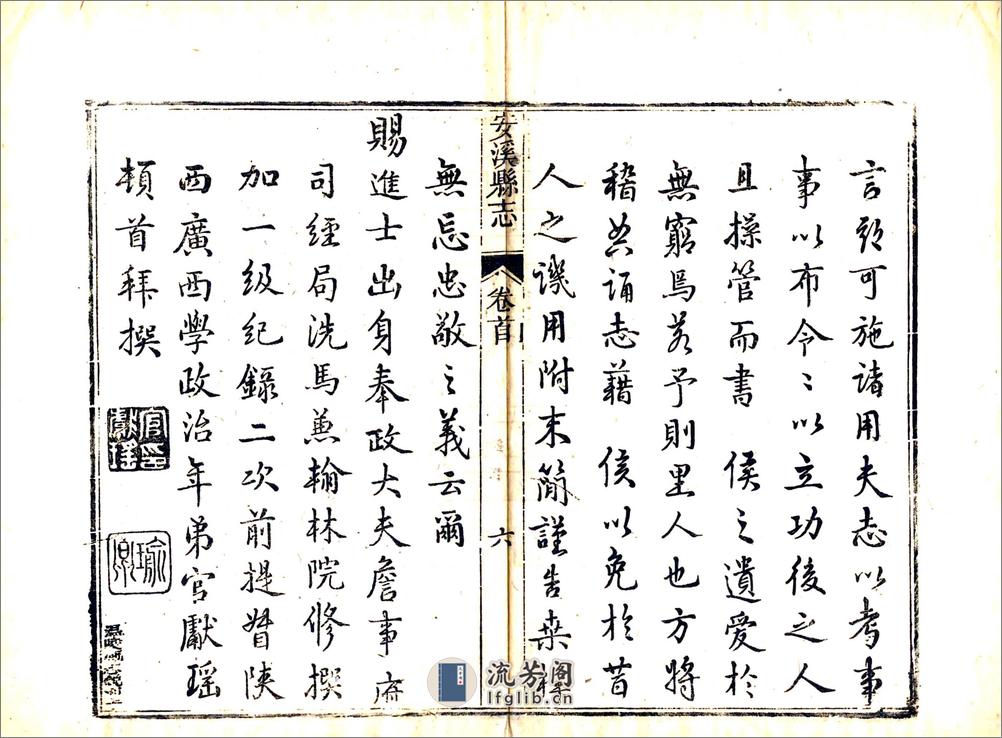 言頭可施諸用夫志以考事
事以布令令以立功後之人
且操管而書 侯之遺愛於
無窮焉若予則里人也方將
稽典誦志藉 侯以免於昔
人之譏用附末簡謹告桑梓
安溪縣志 卷首 六
無忘忠敬之義云爾
賜進士出身奉政大夫詹事府
司經局洗馬兼翰林院修撰
加一級紀錄二次前提督陝
西廣西學政治年弟官獻瑤
頓首拜撰
官印獻瑤
瑜卿
流芳阁
lfglib.cn